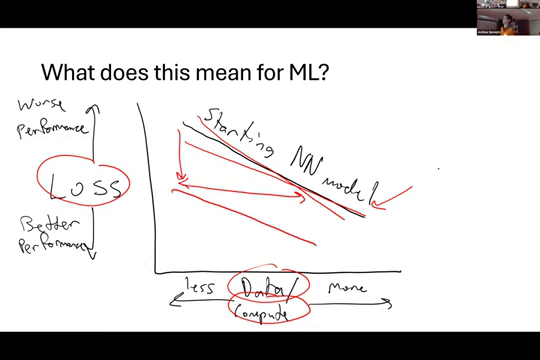 What does this mean for ML?
Worse
Performance
Loss
Better
Performance
Starting NN model
less Data/ more
Compute